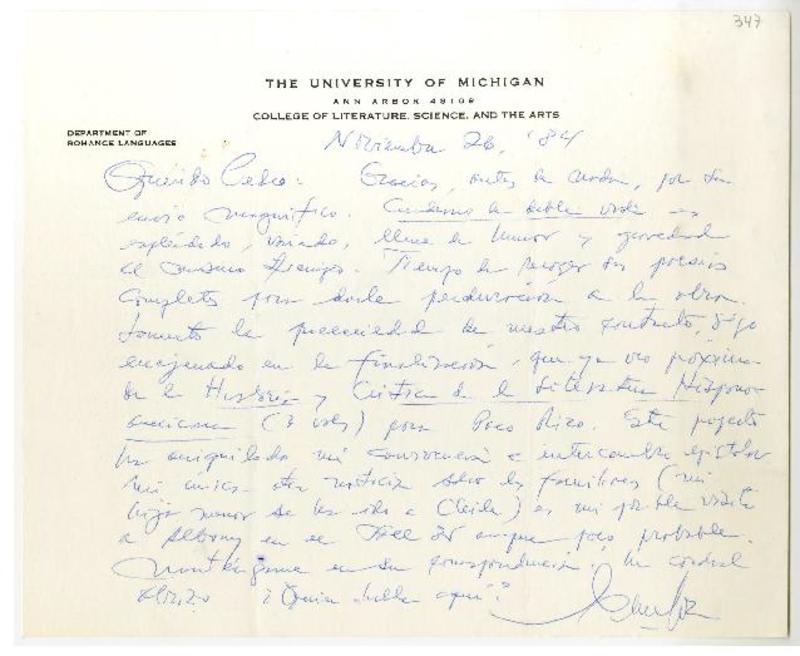 347
THE UNIVERSITY OF MICHIGAN
ANN ARBOR 48109
COLLEGE OF LITERATURE, SCIENCE, AND THE ARTS
DEPARTMENT OF
ROMANCE LANGUAGES
Noviembre 26, '84
Querido Pedro: Gracias, antes de nada, por su
envío magnífico. Cuaderno de doble vida es
espléndido, variado, lleno de humor y gravedad
al mismo tiempo. Tiempo de recoger sus poesías
completas para darle perduración a la obra.
Lamento la precariedad de nuestro contacto, sigo
enajenado en la finalización, que ya veo próxima
de la Historia y Crítica de la Literatura Hispano-
americana (3 vols) para Paco Rico. Este proyecto
ha aniquilado mi
intercambio epistolar
mi única otra noticia sobre los familiares (mi
hijo menor se ha ido a Chile) es mi posible visita
a Albany en el aunque poco probable.
Manténgame en su correspondencia. Un cordial
abrazo ¿Quién habla aquí?